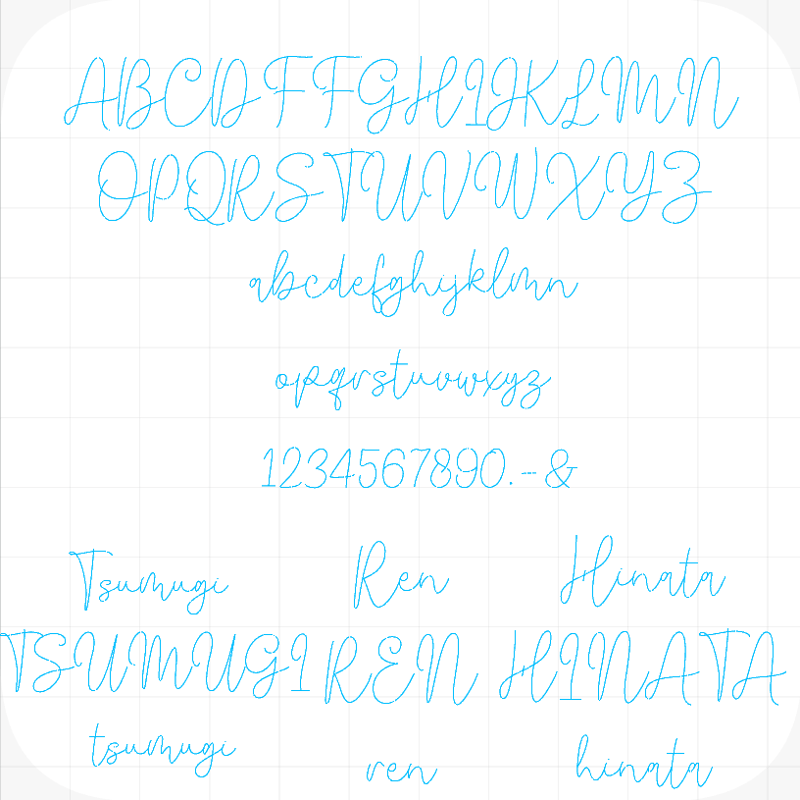 ABCDFFGHIJKLMN
OPQRSTUVWXYZ
abcdefghijklmn
opqrstuvwxyz
1234567890.-&
Tsumugi Ren Hinata
TSUMUGI REN HINATA
tsumugi ren hinata